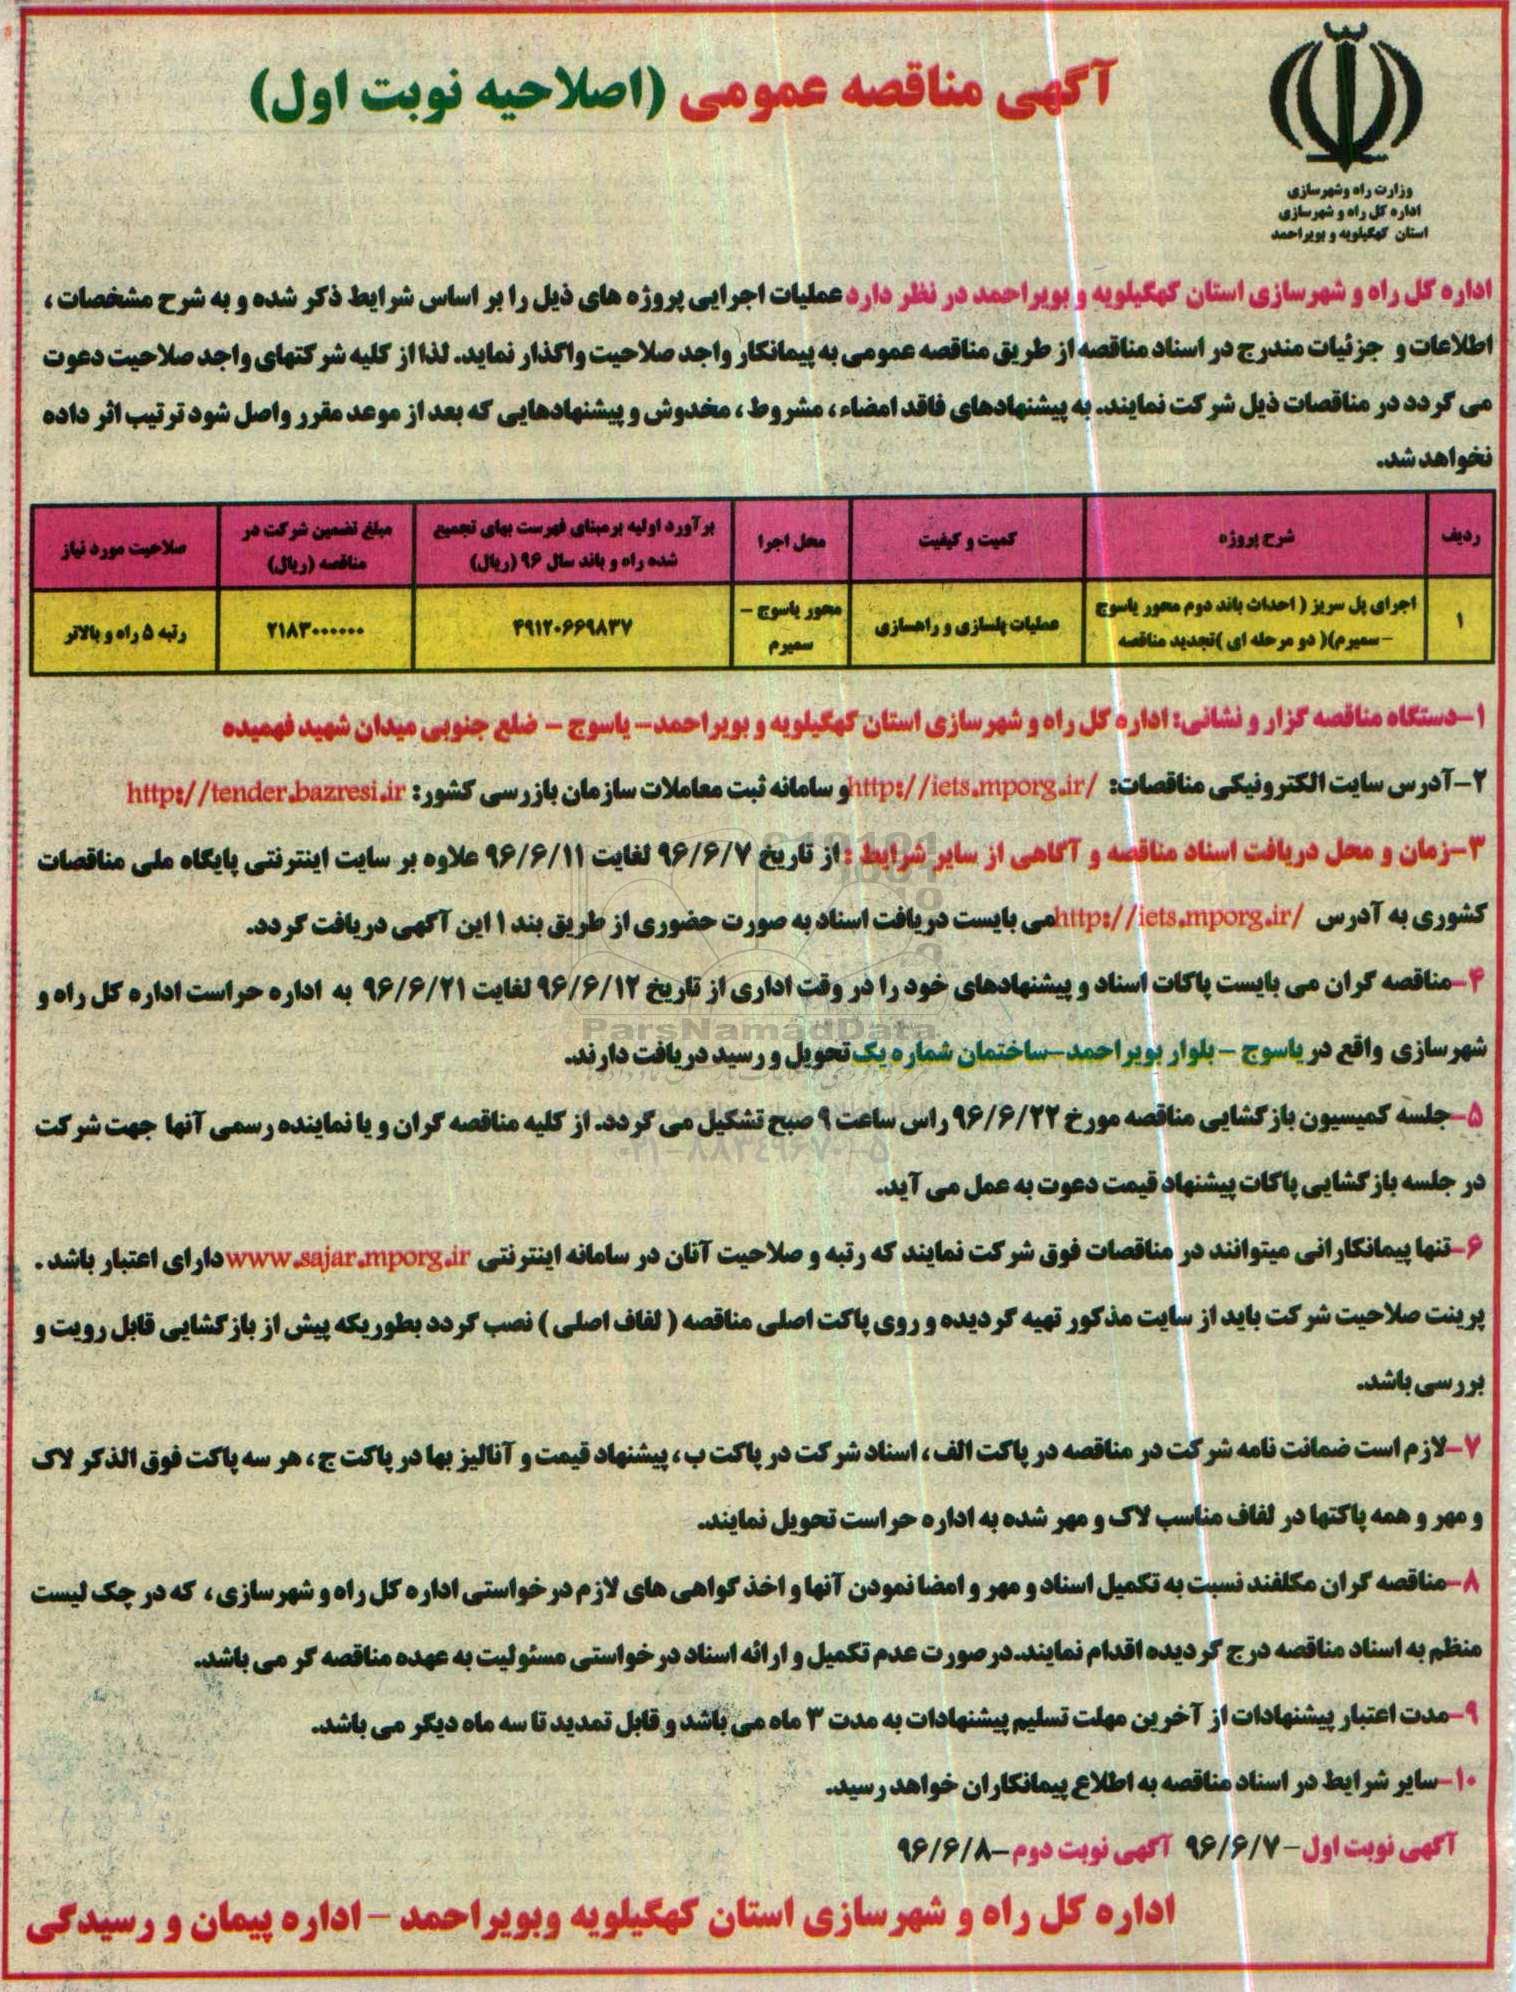 وزارت راه وشهرسازی
اداره کل راه و شهرسازی
استان کهگیلویه و بویراحمد
آگهی مناقصه عمومی (اصلاحیه نوبت اول)
اداره کل راه و شهرسازی استان کهگیلویه و بویراحمد در نظر دارد عملیات اجرایی پروژه های ذیل را بر اساس شرایط ذکر شده و به شرح مشخصات ،
اطلاعات و جزئیات مندرج در اسناد مناقصه از طریق مناقصه عمومی به پیمانکار واجد صلاحیت واگذار نماید. لذا از کلیه شرکتهای واجد صلاحیت دعوت
می گردد در مناقصات ذیل شرکت نمایند. به پیشنهادهای فاقد امضاء ، مشروط ، مخدوش و پیشنهادهایی که بعد از موعد مقرر واصل شود ترتیب اثر داده
نخواهد شد.
ردیف	شرح پروژه	کمیت و کیفیت	محل اجرا	برآورد اولیه برمبنای فهرست بهای تجمیع شده راه و باند سال ۹۶ (ریال)	مبلغ تضمین شرکت در مناقصه (ریال)	صلاحیت مورد نیاز
۱	اجرای پل سریز ( احداث باند دوم محور یاسوج – سمیرم)( دو مرحله ای )تجدید مناقصه	عملیات پلسازی و راهسازی	محور یاسوج – سمیرم	۴۹۱۲۰۶۶۹۸۳۷	۲۱۸۳۰۰۰۰۰۰	رتبه ۵ راه و بالاتر
۱-دستگاه مناقصه گزار و نشانی: اداره کل راه و شهرسازی استان کهگیلویه و بویراحمد- یاسوج - ضلع جنوبی میدان شهید فهمیده
۲-آدرس سایت الکترونیکی مناقصات: http://iets.mporg.ir/و سامانه ثبت معاملات سازمان بازرسی کشور: http://tender.bazresi.ir
۳-زمان و محل دریافت اسناد مناقصه و آگاهی از سایر شرایط : از تاریخ ۹۶/۶/۷ لغایت ۹۶/۶/۱۱ علاوه بر سایت اینترنتی پایگاه ملی مناقصات
کشوری به آدرس http://iets.mporg.ir/می بایست دریافت اسناد به صورت حضوری از طریق بند ۱ این آگهی دریافت گردد.
۴-مناقصه گران می بایست پاکات اسناد و پیشنهادهای خود را در وقت اداری از تاریخ ۹۶/۶/۱۲ لغایت ۹۶/۶/۲۱ به اداره حراست اداره کل راه و
شهرسازی واقع در یاسوج - بلوار بویراحمد-ساختمان شماره یک تحویل و رسید دریافت دارند.
۵-جلسه کمیسیون بازگشایی مناقصه مورخ ۹۶/۶/۲۲ راس ساعت ۹ صبح تشکیل می گردد. از کلیه مناقصه گران و یا نماینده رسمی آنها جهت شرکت
در جلسه بازگشایی پاکات پیشنهاد قیمت دعوت به عمل می آید.
۶-تنها پیمانکارانی میتوانند در مناقصات فوق شرکت نمایند که رتبه و صلاحیت آنان در سامانه اینترنتی www.sajar.mporg.ir دارای اعتبار باشد .
پرینت صلاحیت شرکت باید از سایت مذکور تهیه گردیده و روی پاکت اصلی مناقصه ( لفاف اصلی ) نصب گردد بطوریکه پیش از بازگشایی قابل رویت و
بررسی باشد.
۷-لازم است ضمانت نامه شرکت در مناقصه در پاکت الف ، اسناد شرکت در پاکت ب ، پیشنهاد قیمت و آنالیز بها در پاکت ج ، هر سه پاکت فوق الذکر لاک
و مهر و همه پاکتها در لفاف مناسب لاک و مهر شده به اداره حراست تحویل نمایند.
۸-مناقصه گران مکلفند نسبت به تکمیل اسناد و مهر و امضا نمودن آنها و اخذ گواهی های لازم درخواستی اداره کل راه و شهرسازی ، که در چک لیست
منظم به اسناد مناقصه درج گردیده اقدام نمایند.درصورت عدم تکمیل و ارائه اسناد درخواستی مسئولیت به عهده مناقصه گر می باشد.
۹-مدت اعتبار پیشنهادات از آخرین مهلت تسلیم پیشنهادات به مدت ۳ ماه می باشد و قابل تمدید تا سه ماه دیگر می باشد.
۱۰-سایر شرایط در اسناد مناقصه به اطلاع پیمانکاران خواهد رسید.
آگهی نوبت اول -۹۶/۶/۷ آگهی نوبت دوم -۹۶/۶/۸
اداره کل راه و شهرسازی استان کهگیلویه وبویراحمد - اداره پیمان و رسیدگی
ParsNamadData
۰۲۱-۸۸۳۴۹۶۷۰-۵